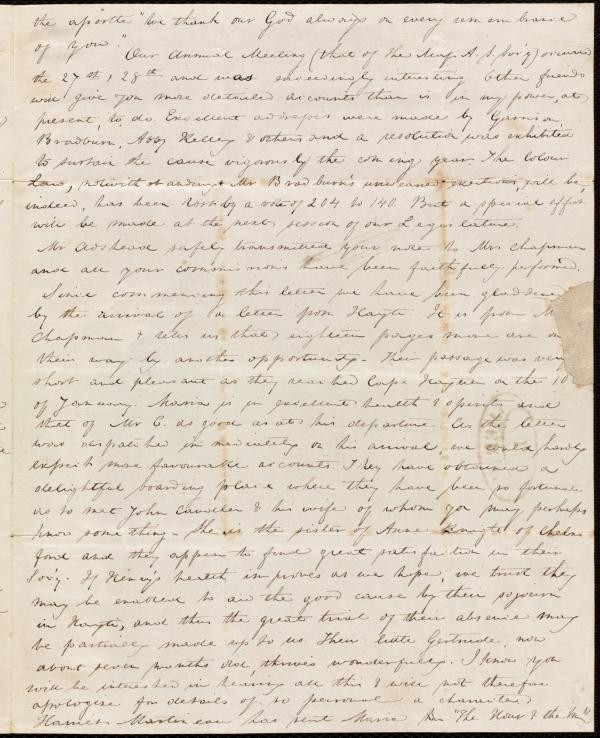 the apostle "We thank our God always on every remembrance
of you."
Our Annual Meeting (that of the Mass. A. S. Soc'y) occurred
the 27th & 28th and was exceedingly interesting. Other friends
will give you more detailed accounts than is in my power, at
present, to do. Excellent addresses were made by Garrison,
Bradburn, Abby Kelley & others and a resolution was exhibited
to sustain the cause vigorously the coming year. The Colour
Law, notwithstanding Mr Bradburn's unwearied exertions, will be,
indeed, has been lost by a vote of 204 to 140. But a special effort
will be made at the next session of our Legislature.
Mr Adshead safely transmitted your note to Mrs Chapman
and all your commissions have been faithfully performed.
Since commencing this letter we have been gladdened
by the arrival of a letter from Hayti. It is from
Chapman & tells us that eighteen pages more are on
their way by another opportunity. Their passage was very
short and pleasant as they reached Cape Haytien on the 10
of January. Maria is in excellent health & spirits and
that of Mr C. as good as at his departure. As the letter
was dispatched immediately on his arrival we could hardly
expect more favourable accounts. They have obtained a
delightful boarding place where they have been so fortunate
as to met John Candler & his wife of whom you may perhaps
know something - She is the sister of Anne Knight of Chelms
ford and they appear to find great satisfaction in their
Soc'y. If Henry's health improves as we hope, we trust they
may be enabled to aid the good cause by their sojourn
in Hayti, and thus the great trial of their absence may
be partially made up to us. Their little Gertrude, now
about seven months old, thrives wonderfully. I know you
will be interested in hearing all this & will not therefore
apologise for details of so personal a character.
Harriet Martineau has sent Maria her "The Hour & the Man"